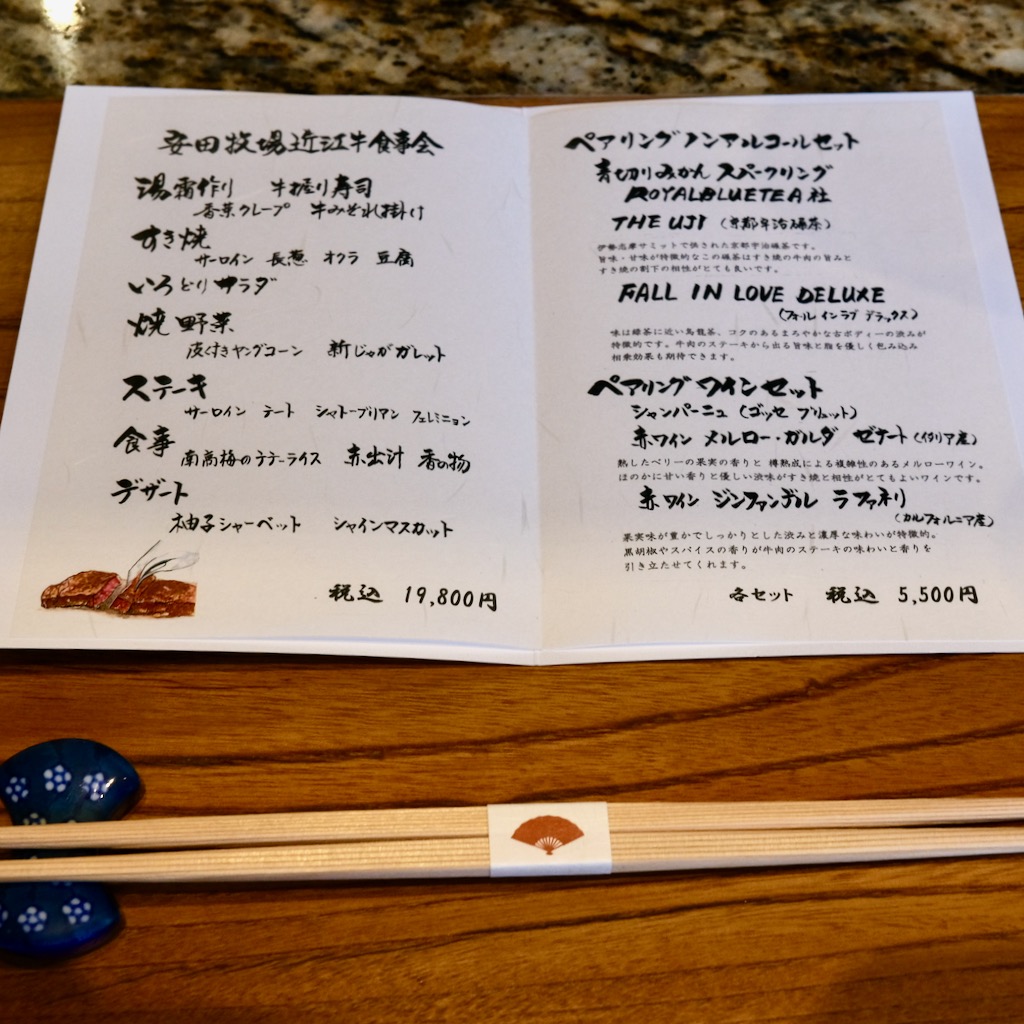 安田牧場近江牛食事会
湯霜作り 牛握り寿司
香菜クレープ 牛みぞれ掛け
すき焼
サーロイン 長葱 オクラ 豆腐
いろどりサラダ
焼野菜
皮付きヤングコーン 新じゃがガレット
ステーキ
サーロイン テート シャトーブリアン フェレミニョン
食事
南高梅の 赤出汁 香の物
デザート
柚子シャーベット シャインマスカット
税込 19,800円
ペアリングノンアルコールセット
青切りみかん スパークリング
ROYALBLUETEA社
THE UJI (京都宇治碾茶)
伊勢志摩サミットで供された京都宇治碾茶です。
旨味・甘味が特徴的なこの碾茶はすき焼の牛肉の旨みと
すき焼の割下の相性がとても良いです。
FALL IN LOVE DELUXE
(フォール イン ラブ デラックス)
味は緑茶に近い烏龍茶、コクのあるまろやかな古ボディーの渋みが
特徴的です。牛肉のステーキから出る旨味と脂を優しく包み込み
相乗効果も期待できます。
ペアリングワインセット
シャンパーニュ (ゴッセ ブリュット)
赤ワイン メルロー・ガルダ ゼナート (イタリア産)
熟したベリーの果実の香りと 樽熟成による複雑性のあるメルローワイン。
ほのかに甘い香りと優しい渋味がすき焼と相性がとてもよいワインです。
赤ワイン ジンファンデル ラファネリ
(カルフォルニア産)
果実味が豊かでしっかりとした渋みと濃厚な味わいが特徴的。
黒胡椒やスパイスの香りが牛肉のステーキの味わいと香りを
引き立たせてくれます。
各セット 税込 5,500円